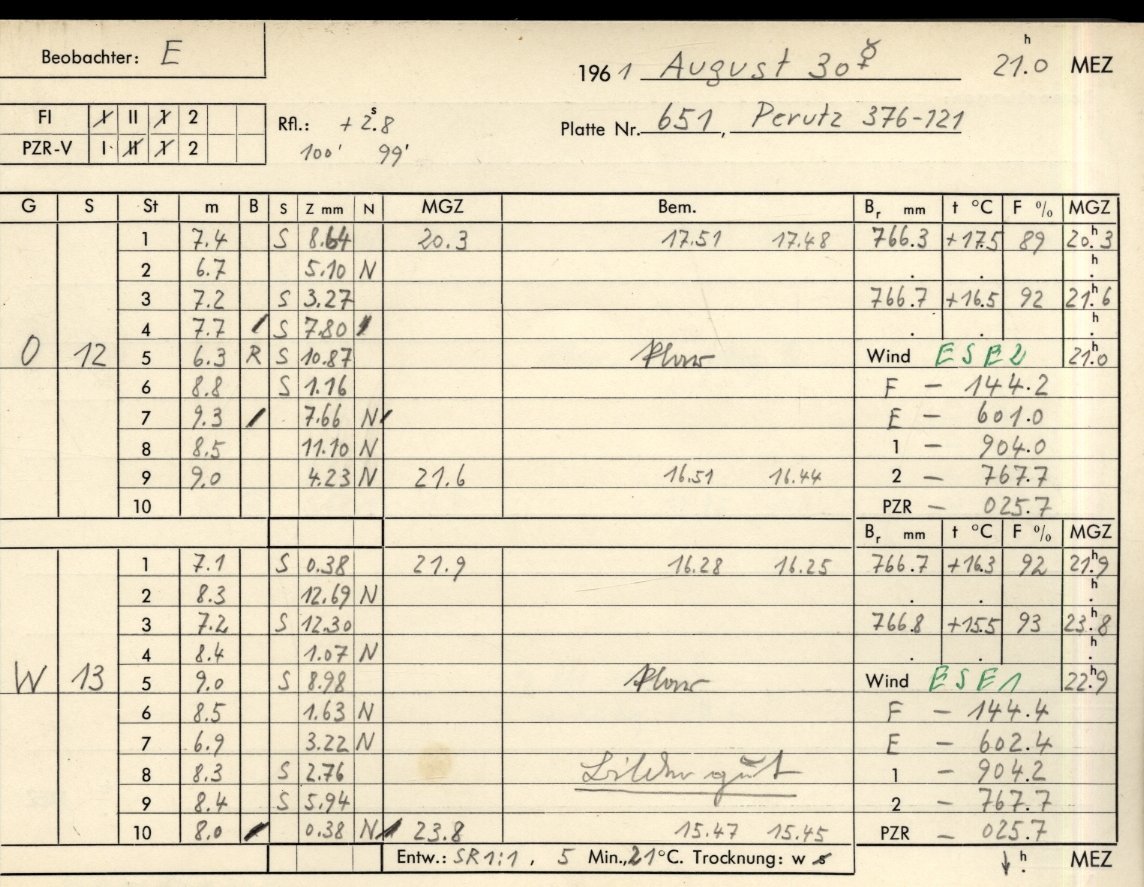 Beobachter: E
1961 August 30 ☿ 21.0 h MEZ
FI I II 1 2
Rfl.: + 2.8 s
Platte Nr. 651, Perutz 376-121
PZR-V I II 1 2
100' 99'
G S St m B S Z mm N MGZ Bem. Br mm t °C F % MGZ
1 7.4 S 8.64 20.3 17.51 17.48 766.3 +17.5 89 20.h3
2 6.7 5.10 N . . h.
3 7.2 S 3.27 766.7 +16.5 92 21.h6
4 7.7 S 7.80 . . h.
O 12 5 6.3 R S 10.87 Wind ESE2 21.h0
6 8.8 S 1.16 F – 144.2
7 9.3 7.66 N E – 601.0
8 8.5 11.10 N 1 – 904.0
9 9.0 4.23 N 21.6 16.51 16.44 2 – 767.7
10 PZR – 025.7
Br mm t °C F % MGZ
1 7.1 S 0.38 21.9 16.28 16.25 766.7 +16.3 92 21.h9
2 8.3 12.69 N . . h.
3 7.2 S 12.30 766.8 +15.5 93 23.h8
4 8.4 1.07 N . . h.
W 13 5 9.0 S 8.98 Wind ESE1 22.h9
6 8.5 1.63 N F – 144.4
7 6.9 3.22 N E – 602.4
8 8.3 S 2.76 Bilder gut 1 – 904.2
9 8.4 S 5.94 2 – 767.7
10 8.0 0.38 N 23.8 15.47 15.45 PZR – 025.7
Entw.: SR 1:1, 5 Min., 21°C. Trocknung: w s h. MEZ